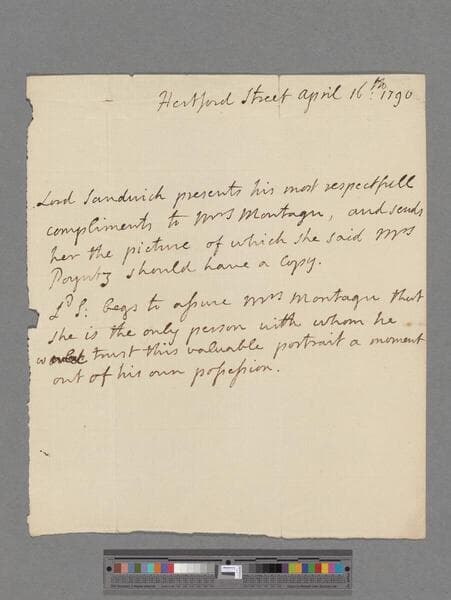 Hertford Street April 16th. 1790
Lord Sandwich presents his most respectfull
compliments to Mrs Montagu, and sends
her the picture of which she said Mrs
Poyntz should have a copy.
Ld S: begs to assure Mrs Montagu that
she is the only person with whom he
would trust this valuable portrait a moment
out of his own possession.